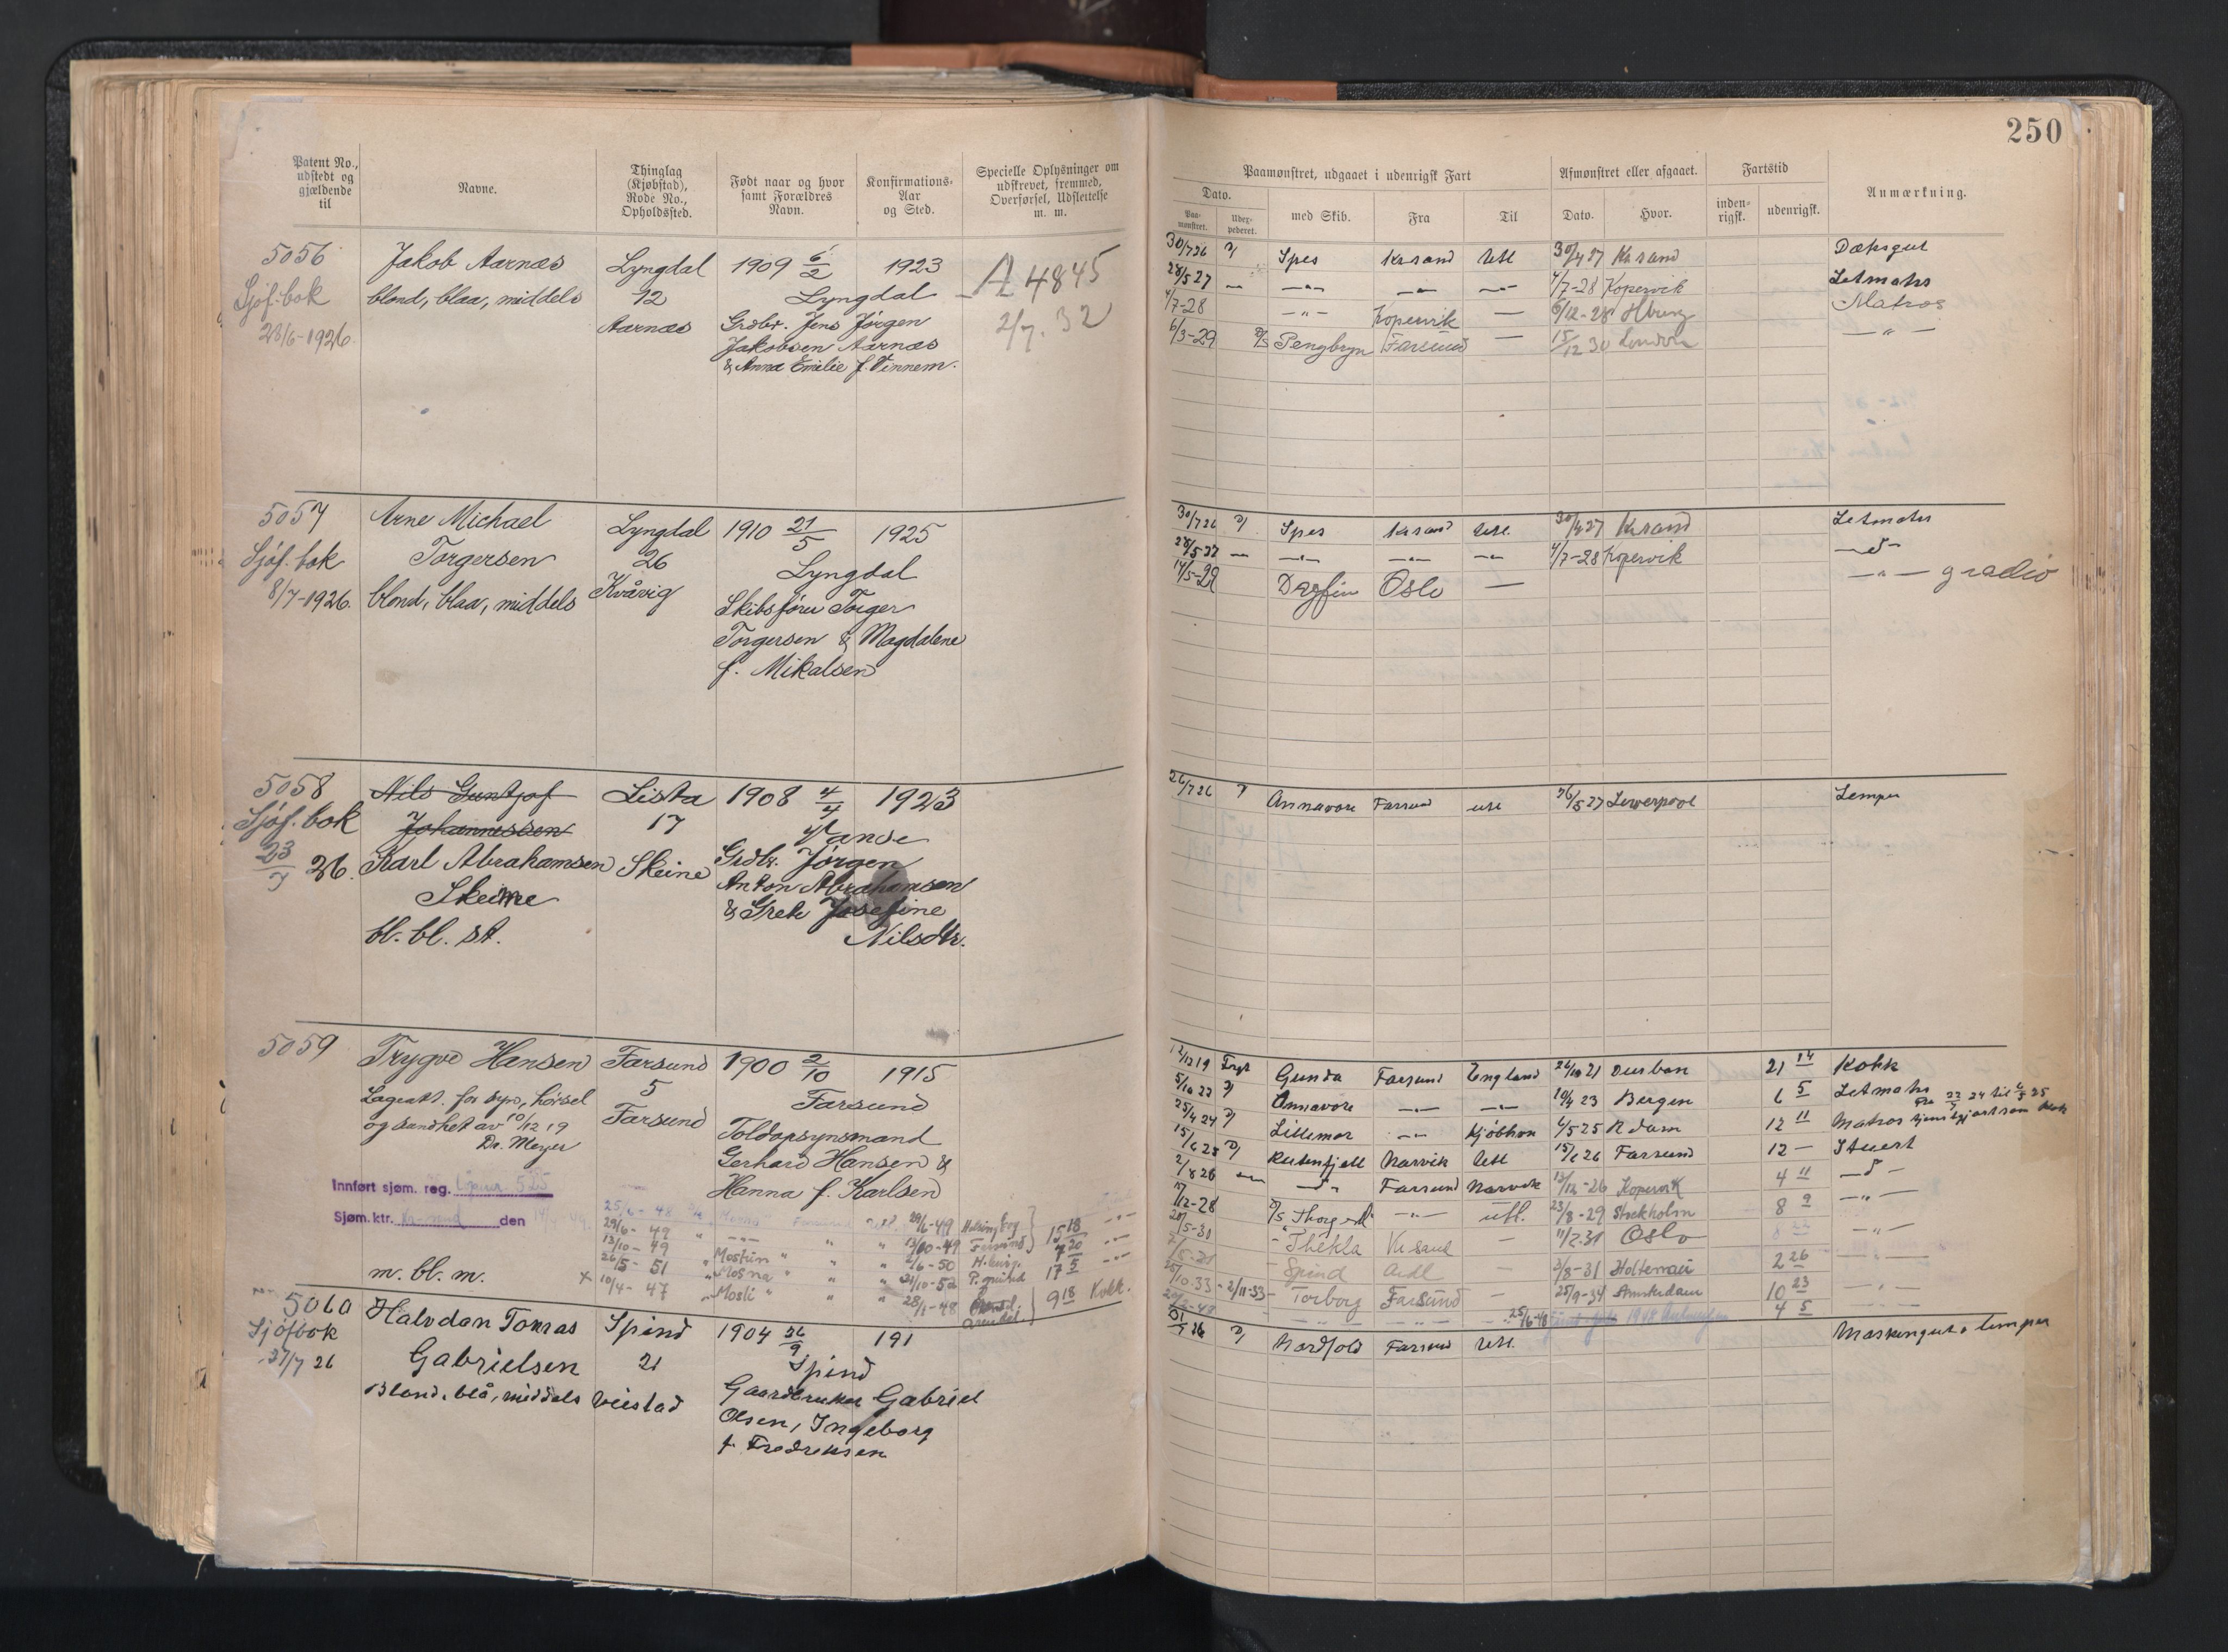 250
Patent No., udstedt og gjældende til
Navne.
Thinglag (Kjøbstad), Rode No., Opholdssted.
Født naar og hvor samt Forældres Navn.
Konfirmations-Aar og Sted.
Specielle Oplysninger om udskrevet, fremmed, Overførsel, Udslettelse m. m.
Paamønstret, udgaaet i udenrigsk Fart
Dato.
Paamønstret.
med Skib.
Fra
Til
Afmønstret eller afgaaet.
Dato.
Hvor.
Fartstid
inden-rigsk.
udenrigsk.
Anmærkning.
5056
Sjøf.bok
28/6-1926
Jakob Aarnæs
blond, blaa, middels
Lyngdal
12
Aarnæs
1909 6/2
1923
Lyngdal
Grdbr. Jens Jørgen
Jakobsen Aarnæs
& Anna Emilie f. Vinnem.
A 4845
2/7. 32
30/7 26 Spes Krsand Utl 30/4 27 Krsand Dæksgut
28/5 27 —"— —"— —"— 4/7-28 Kopervik Letmatrs
4/7-28 —"— Kopervik — 6/12-28 Matros
6/3-29 D/S Pengbryn Farsund — 15/12 30 London —"—
5057
Sjøf. bok
8/7-1926.
Arne Michael
Torgersen
blond, blaa, middels
Lyngdal
26
Kvåvig
1910 21/5
1925
Lyngdal
Skibsfører Torger
Torgersen & Magdalene
f. Mikalsen
30/7 26 Spes Krsand Utl. 30/4 27 Krsand Letmatrs
28/5 27 —"— —"— —"— 4/7-28 Kopervik —d—
14/5-29 Dagfin Oslo — —"—
5058
Sjøf. bok
23/7 26.
Nils Guntjof
Johannessen
Karl Abrahamsen
Skeime
bl. bl. st.
Lista
17
Skeine
1908 4/4
1923
Vanse
Grdbr. Jørgen
Anton Abrahamsen
& Grete Josefine
Nilsdtr.
26/7 26 Annavore Farsund utl 26/5 27 Leverpool Lemper
5059
Trygve Hansen
Lægeatt. for syn, hørsel
og sundhet av 10/12 19
Dr. Meyer
Innført sjøm. reg.
Sjøm.ktr. den
m. bl. m.
Farsund
5
Farsund
1900 2/10
1915
Farsund
Toldopsynsmand
Gerhard Hansen &
Hanna f. Karlsen
25/6-48
29/6-49 Helsingborg
29/6-49 —"— " " 13/10-49 Farsund 15 18
13/10-49 " Mostun " " " 2/6-50 7 20
26/5-51 " Mosna " " " 24/10-52 17 5
x 10/4-47 " Mosli " " " 28/1-48 Arendal. 9 18 Kokk.
12/12 19 Gunda Farsund England 26/10 21 Durban 21 14 Kokk
5/10 22 Annavore —"— —"— 10/4 23 Bergen 6 5 Letmatrs
25/4 24 Lillemor —"— Kjøbhvn 6/5 25 Rdam 12 11 Matros tjenstgjort som kok
15/6 25 Rutenfjell Narvik Utl 15/6 26 Farsund 12 — Stuert
2/8 26 —"— —d— Farsund Narvik 13/12-26 Kopervik 4 11 —d—
17/12-28 D/S —"— utl. 23/8-29 Stockholm 8 9 —"—
20/5-30 " Thekla — 11/2.31 Oslo —"—
Spind — 2/8-31 Holtenau 2 26 —"—
25/10.33 - 2/11-33 — Torborg Farsund — 25/9-34 Amsterdam 10 23 —"—
4 5
5060
Sjøfbok
27/7 26
Halvdan Tomas
Gabrielsen
Blond, blå, middels
Spind
21
Veistad
1904 26/9
191
Spind
Gaardbruker Gabriel
Olsen, Ingeborg
f. Fredreksen
31/7 26 Nordfold Farsund Utl. Maskingut & lemper